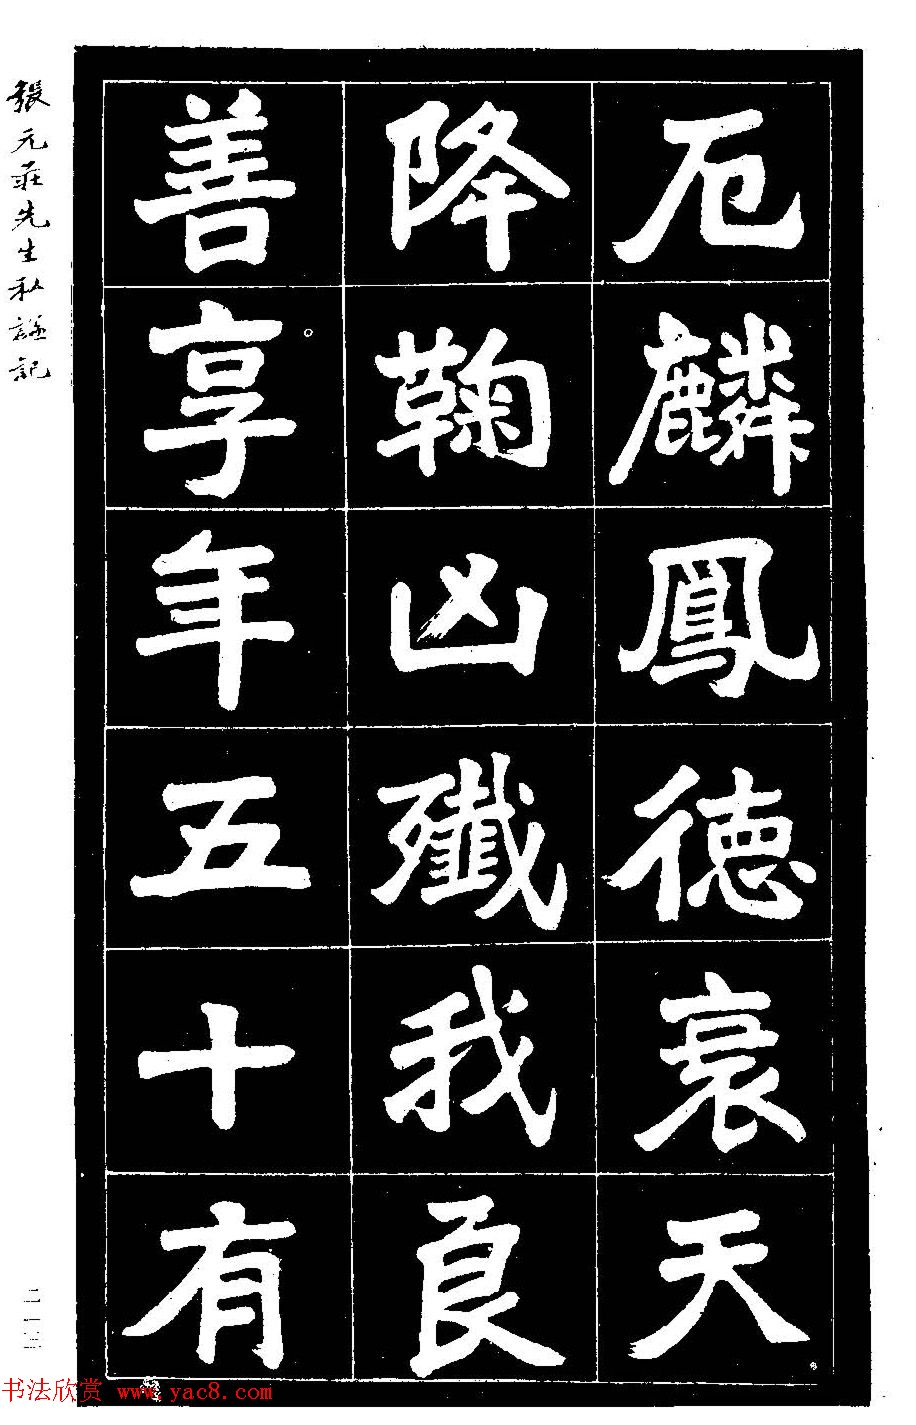 厄麟鳳德衰天
降鞠凶殲我良
善享年五十有
張元莊先生私諡記
二一三
书法欣赏 www.yac8.com